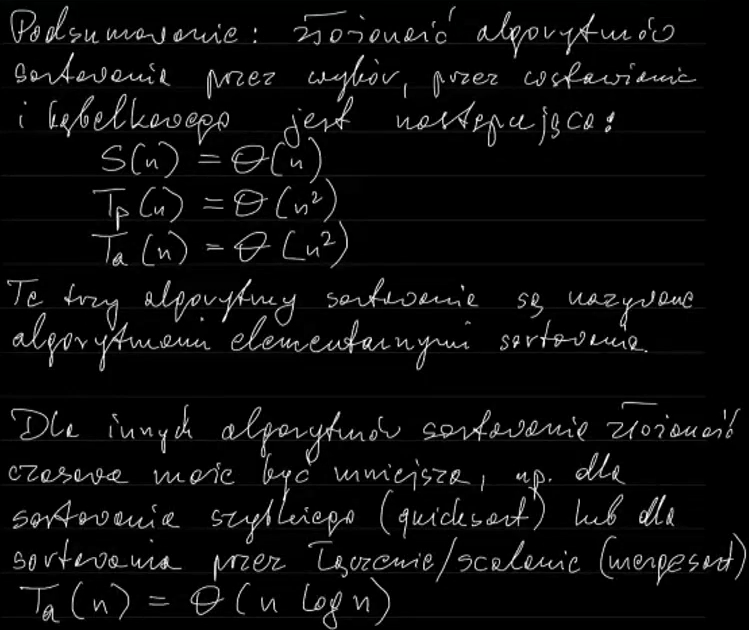 Podsumowanie: złożoność algorytmów
sortowania przez wybór, przez wstawianie
i bąbelkowego jest następująca:
S(n) = Θ(n)
Tp(n) = Θ(n²)
Ta(n) = Θ(n²)
Te trzy algorytmy sortowania są nazywane
algorytmami elementarnymi sortowania.
Dla innych algorytmów sortowania złożoność
czasowa może być mniejsza, np. dla
sortowania szybkiego (quicksort) lub dla
sortowania przez łączenie/scalanie (mergesort)
Ta(n) = Θ(n log n)